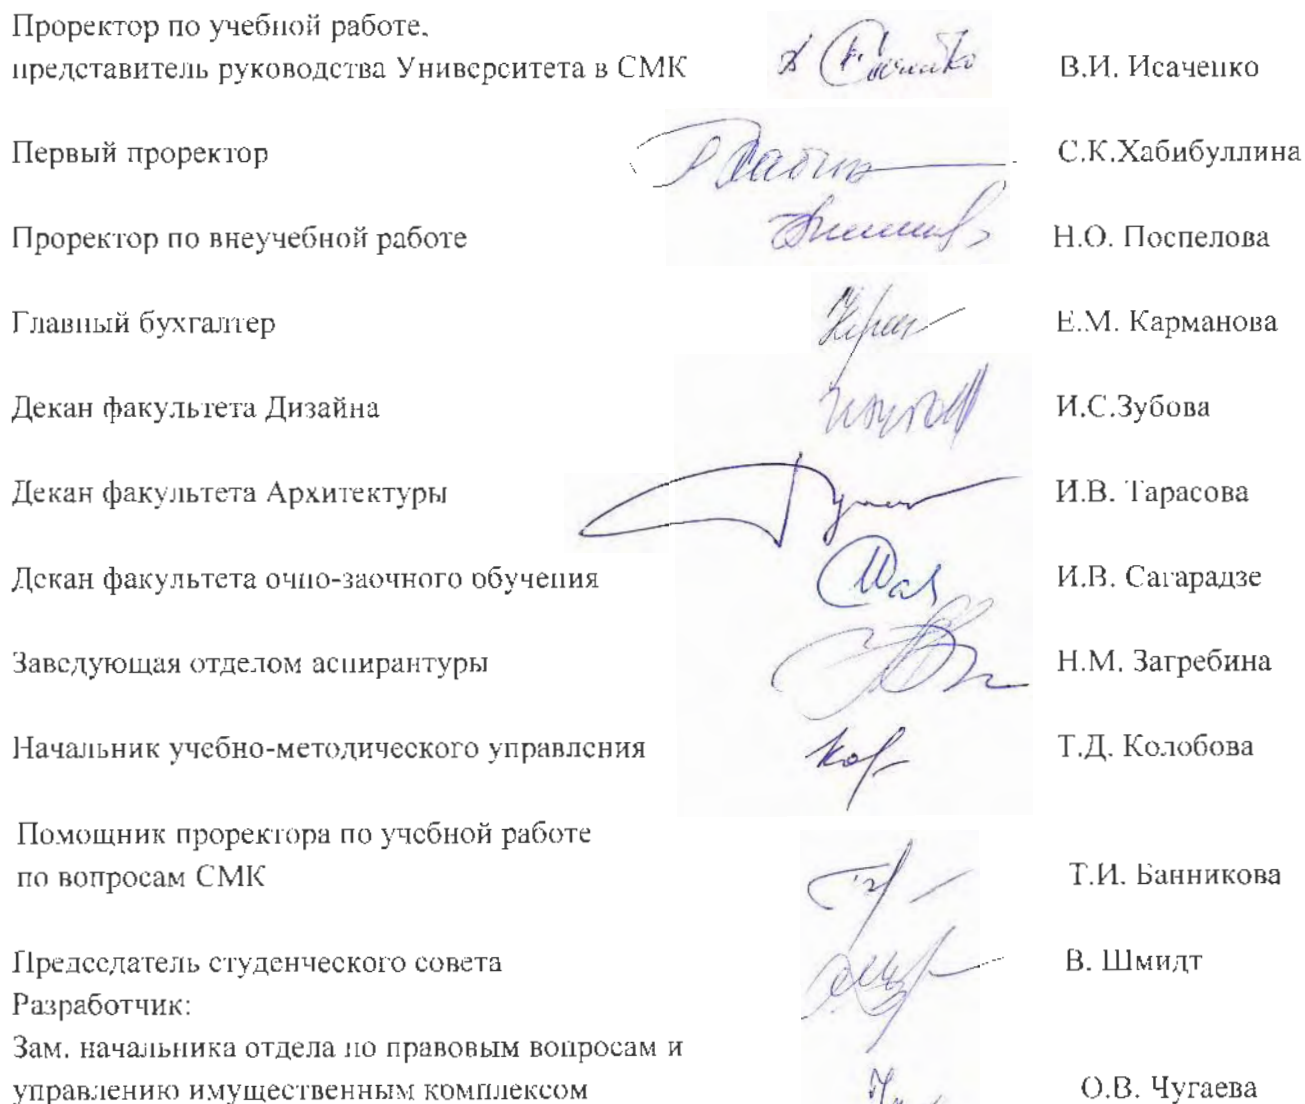 Проректор по учебной работе,
представитель руководства Университета в СМК В.И. Исаченко
Первый проректор С.К.Хабибуллина
Проректор по внеучебной работе Н.О. Поспелова
Главный бухгалтер Е.М. Карманова
Декан факультета Дизайна И.С.Зубова
Декан факультета Архитектуры И.В. Тарасова
Декан факультета очно-заочного обучения И.В. Сагарадзе
Заведующая отделом аспирантуры Н.М. Загребина
Начальник учебно-методического управления Т.Д. Колобова
Помощник проректора по учебной работе
по вопросам СМК Т.И. Банникова
Председатель студенческого совета В. Шмидт
Разработчик:
Зам. начальника отдела по правовым вопросам и
управлению имущественным комплексом О.В. Чугаева